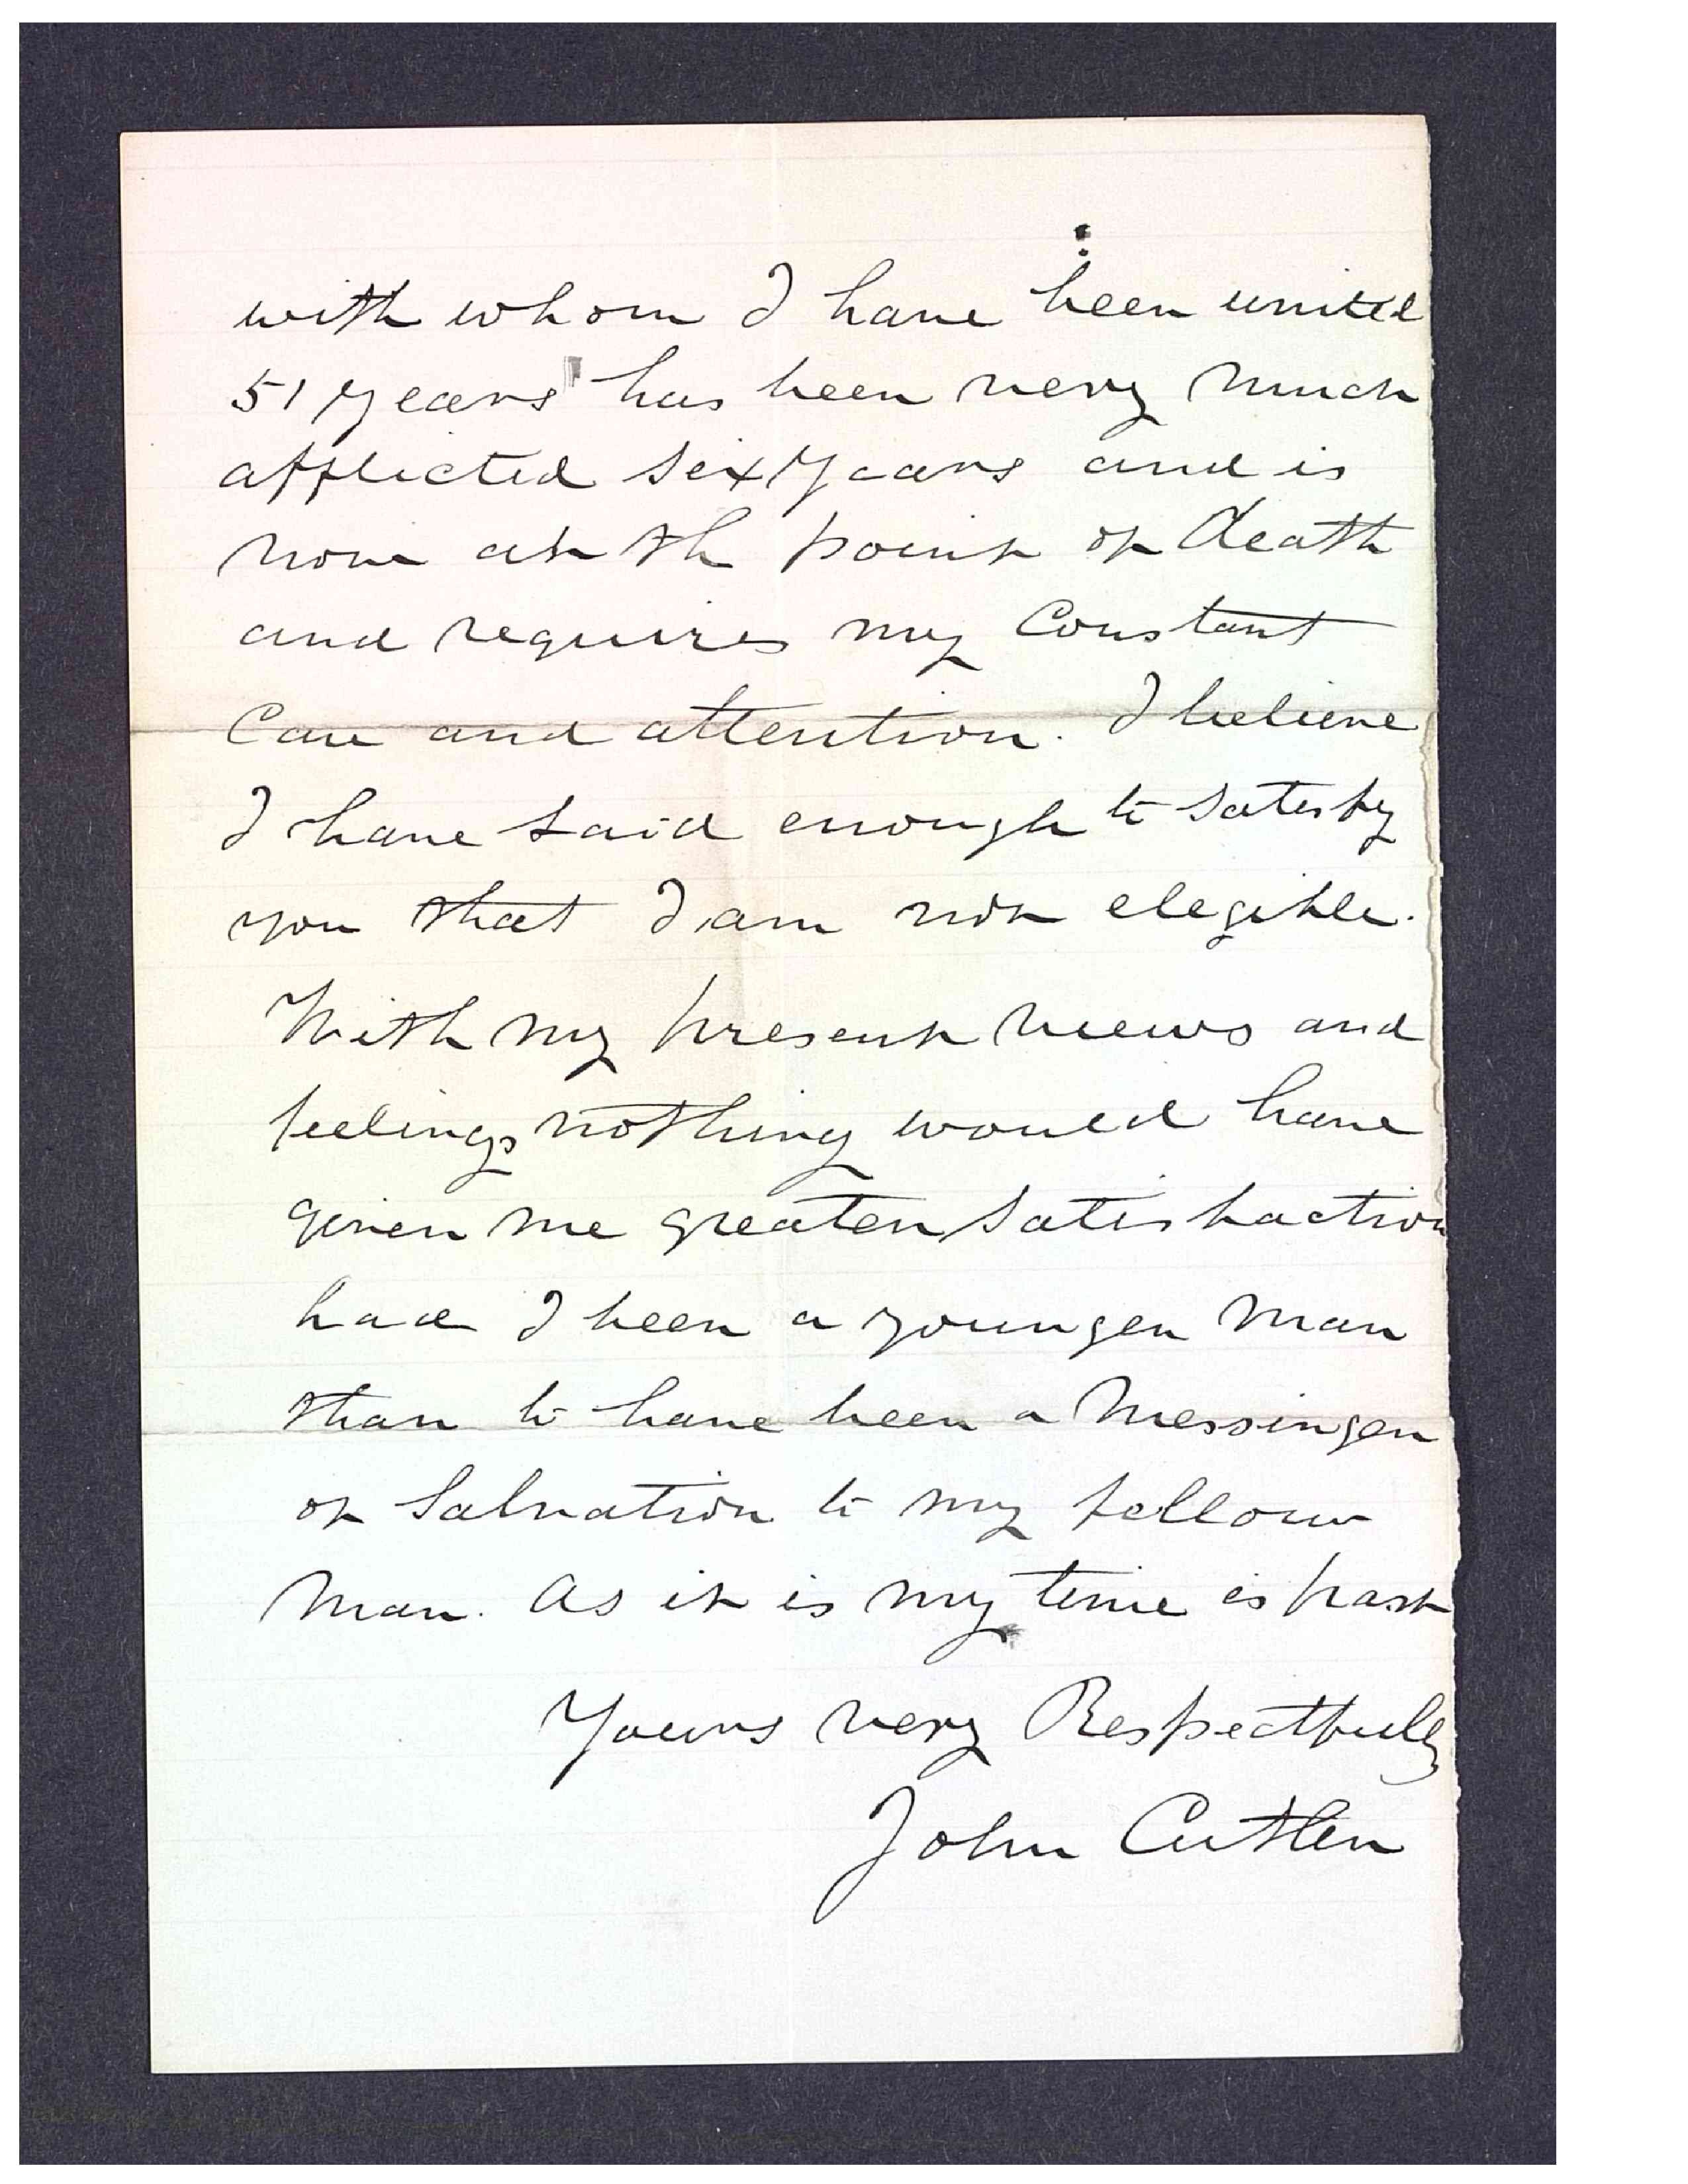 with whom I have been united
51 years has been very much
afflicted six years and is
now at th point of death
and requires my Constant
Care and attention. I believe
I have said enough to satisfy
you that I am not elegible.
With my present views and
feelings nothing would have
given me greater satisfaction
had I been a younger man
than to have been a Messinger
of Salvation to my fellow
man. As it is my time is past
Yours very Respectfully
John Cutler